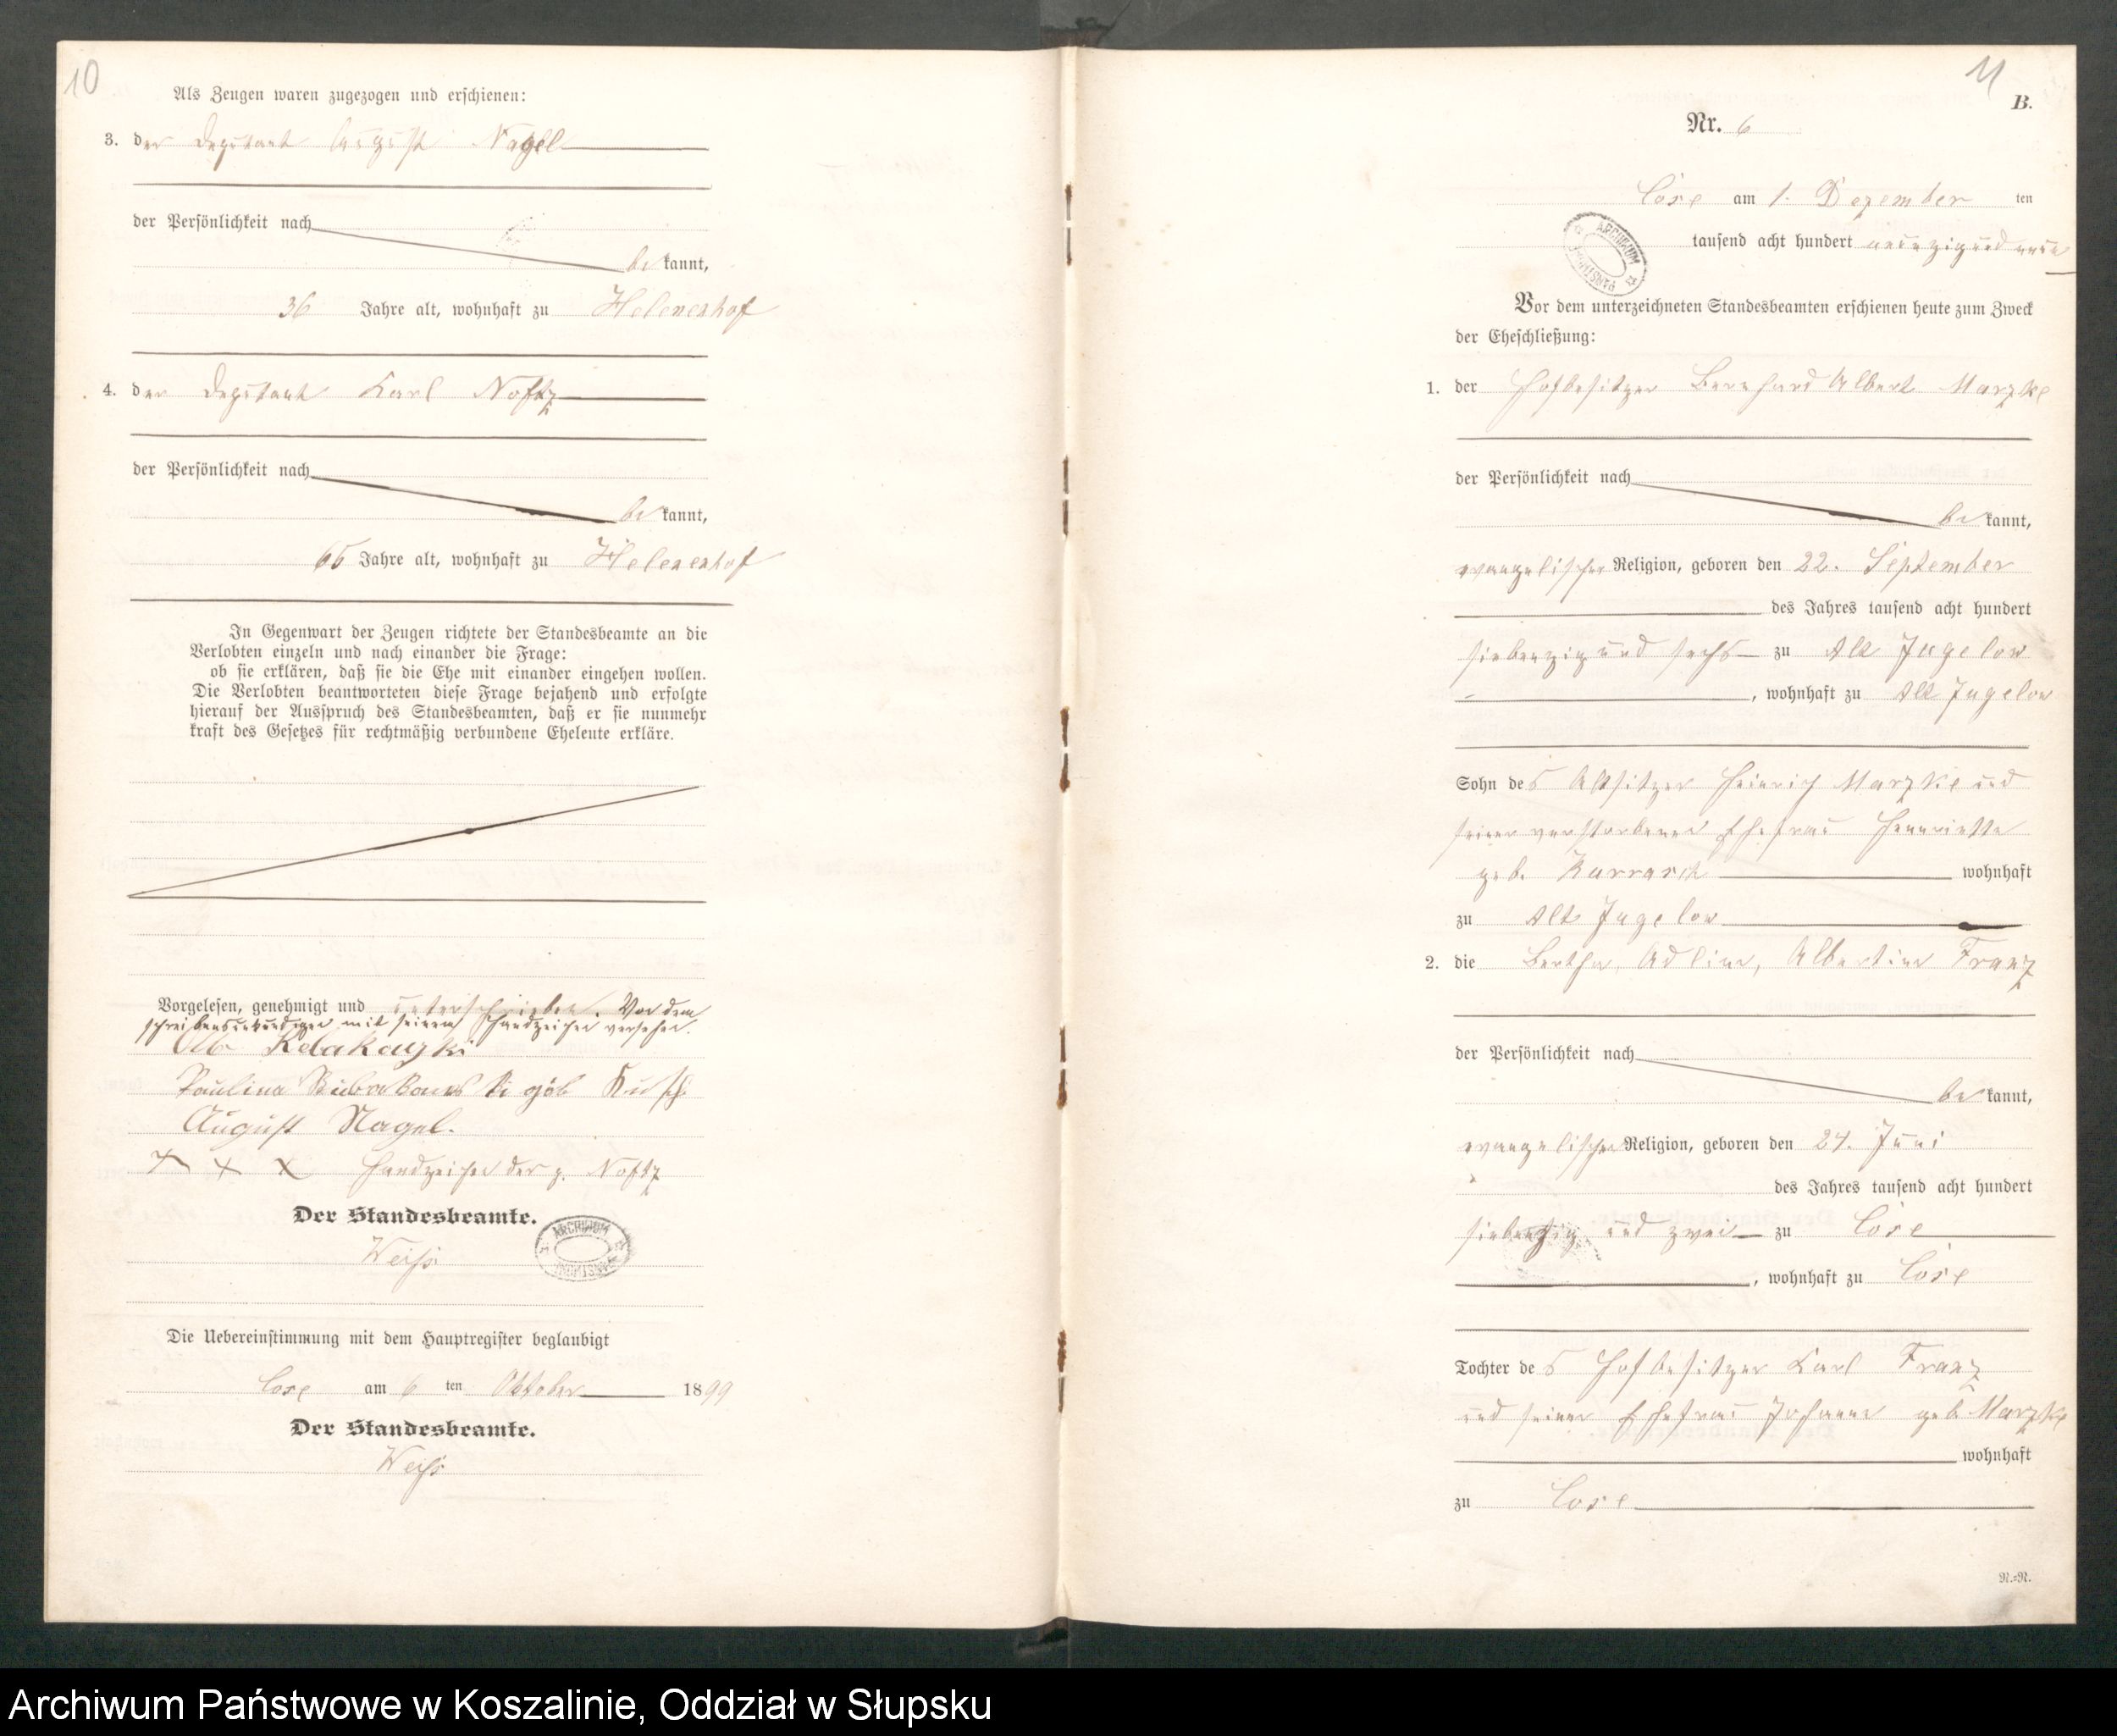 10
Als Zeugen waren zugezogen und erschienen:
3. der Deputant August Nagel
der Persönlichkeit nach
be kannt,
36 Jahre alt, wohnhaft zu Helenenhof
4. der Deputant Karl Noftz
der Persönlichkeit nach
be kannt,
65 Jahre alt, wohnhaft zu Helenenhof
In Gegenwart der Zeugen richtete der Standesbeamte an die
Verlobten einzeln und nach einander die Frage:
ob sie erklären, daß sie die Ehe mit einander eingehen wollen.
Die Verlobten beantworteten diese Frage bejahend und erfolgte
hierauf der Ausspruch des Standesbeamten, daß er sie nunmehr
kraft des Gesetzes für rechtmäßig verbundene Eheleute erkläre.
Vorgelesen, genehmigt und unterschrieben. Von dem
schreibensunkundigen mit seinem Handzeichen versehen.
Paulina geb
August Nagel.
+ + + Handzeichen des p. Noftz
Der Standesbeamte.
Weiß
ARCHIWUM PAŃSTWOWE
Die Uebereinstimmung mit dem Hauptregister beglaubigt
Cose am 6 ten Oktober 1899
Der Standesbeamte.
Weiß
11
B.
Nr. 6
Cose am 1. Dezember ten
tausend acht hundert neunzig und neun
ARCHIWUM PAŃSTWOWE
Vor dem unterzeichneten Standesbeamten erschienen heute zum Zweck
der Eheschließung:
1. der Hofbesitzer Bernhard Albert Marzke
der Persönlichkeit nach
be kannt,
evangelischer Religion, geboren den 22. September
des Jahres tausend acht hundert
siebenzig und sechs zu Alt Jugelow
, wohnhaft zu Alt Jugelow
Sohn des Altsitzer Heinrich Marzke und
seiner verstorbenen Ehefrau Henriette
geb. Karrasch wohnhaft
zu Alt Jugelow
2. die Bertha, Adline, Albertine Franz
der Persönlichkeit nach
be kannt,
evangelischer Religion, geboren den 24. Juni
des Jahres tausend acht hundert
siebenzig und zwei zu Cose
, wohnhaft zu Cose
Tochter des Hofbesitzer Karl Franz
und seiner Ehefrau Johanne geb Marzke
wohnhaft
zu Cose
N.=N.
Archiwum Państwowe w Koszalinie, Oddział w Słupsku